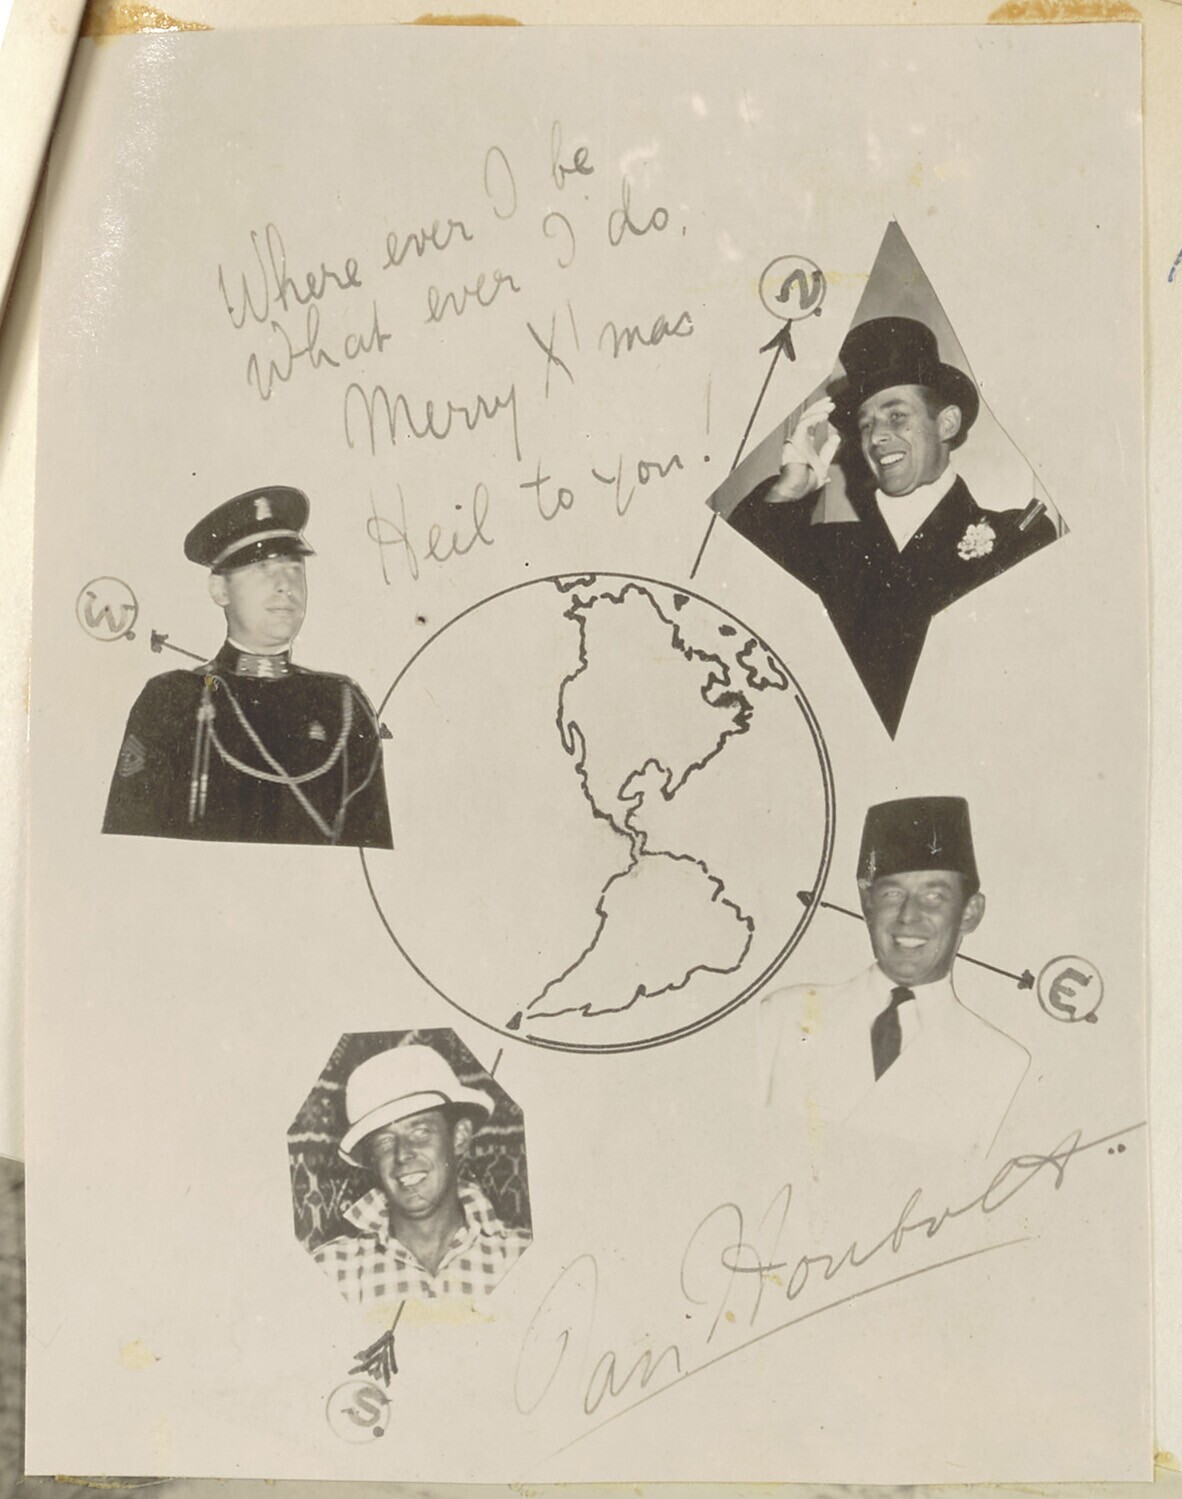 Where ever I be
What ever I do.
Merry X'mas
Heil to you!
N.
W.
E.
S.
Jan Houbolt